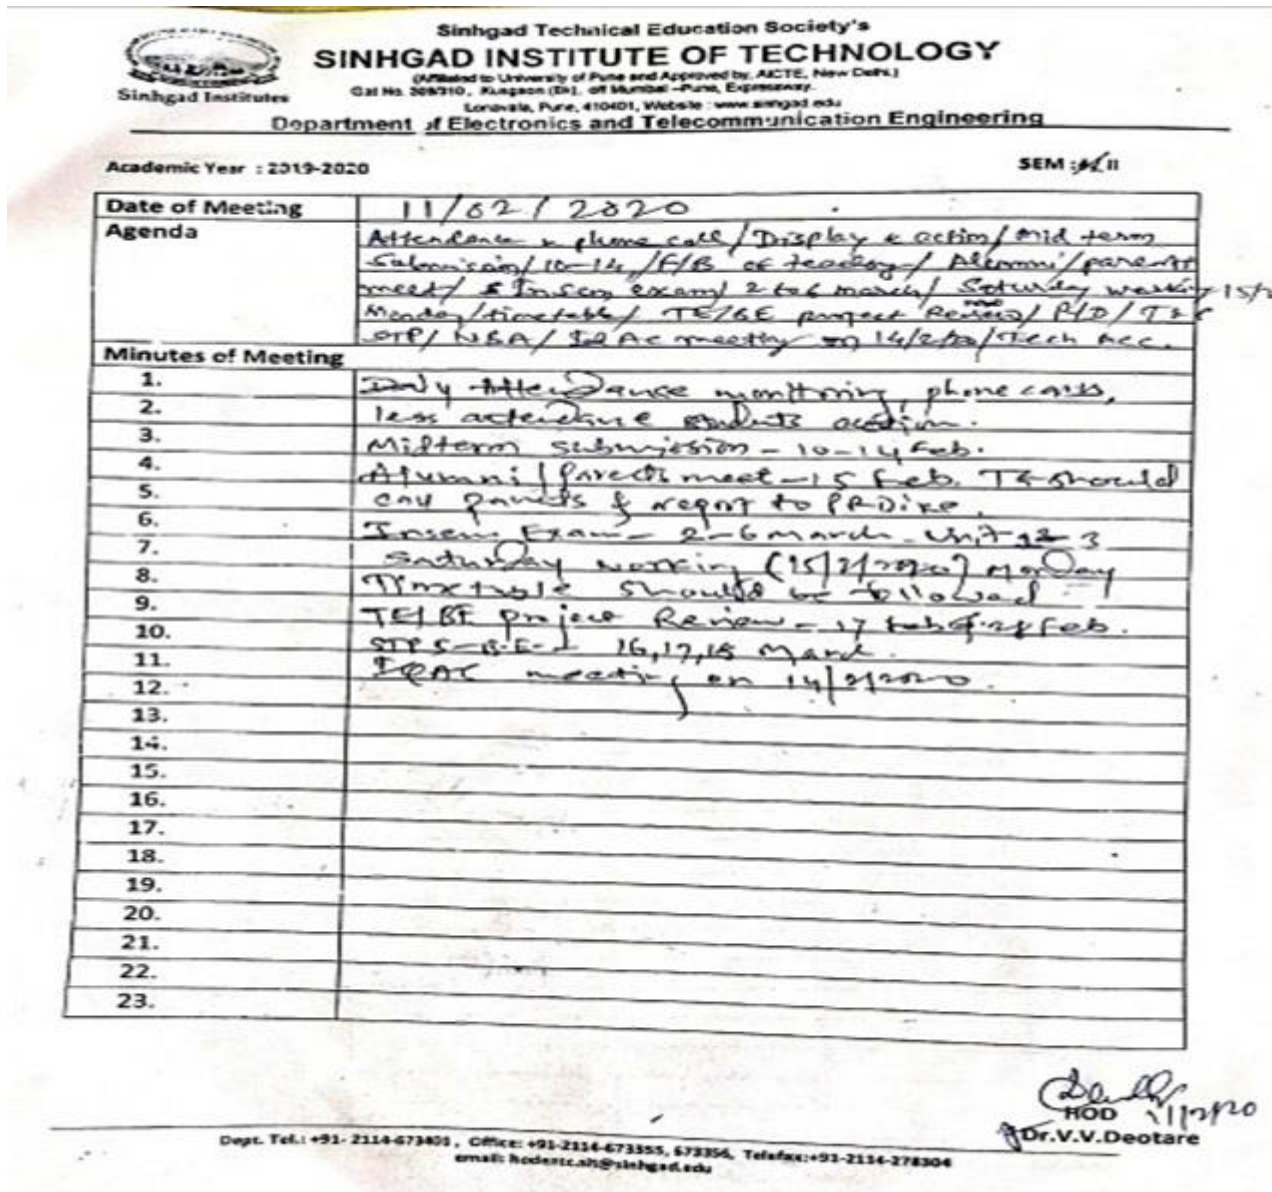 Sinhgad Technical Education Society's
SINHGAD INSTITUTE OF TECHNOLOGY
(Affiliated to University of Pune and Approved by, AICTE, New Delhi.)
Gat No. 309/310, Kusgaon (Bk), off Mumbai –Pune, Expressway.
Lonavala, Pune, 410401, Website : www.sinhgad.edu
Sinhgad Institutes
Department of Electronics and Telecommunication Engineering
Academic Year : 2019-2020
SEM : II
Date of Meeting 11/02/2020
Agenda Attendance & phone call/Display & action/Mid term
Submission/10-14/F/B of teaching/Alumni/parents
meet/ Insem exam/ 2 to 6 march/ Saturday working 15/2
Monday/timetable/ TE/BE project Review/ P/D/
STP/ NBA/ IQAC meeting on 14/2/20/Tech Acc.
Minutes of Meeting
1. Daily Attendance monitoring, phone calls,
2. less attendance students action.
3. Midterm submission - 10-14 Feb.
4. Alumni/Parents meet - 15 Feb. TG should
5. call parents & report to PRDixe.
6. Insem Exam - 2-6 march - Unit 3
7. Saturday working (15/2/2020) Monday
8. Timetable should be followed
9. TE/BE project Review - 17 Feb Feb.
10. STPS-B.E-I 16,17,18 March.
11. IQAC meeting on 14/2/2020.
12.
13.
14.
15.
16.
17.
18.
19.
20.
21.
22.
23.
HOD 11/2/20
Dr.V.V.Deotare
Dept. Tel.: +91- 2114-673401, Office: +91-2114-673355, 673356, Telefax:+91-2114-278304
email: hodentc.sit@sinhgad.edu